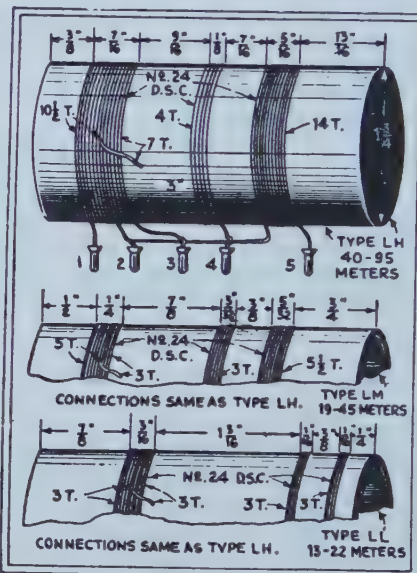 3/8" 7/16" 9/16" 1/8" 7/16" 5/16" 13/16"
Nº. 24
D.S.C.
10½ T. 4 T.
7 T. 14 T.
3"
TYPE LH
40-95
METERS
1 2 3 4 5
1/2" 1/4" 7/8" 3/8" 5/32" 3/4"
Nº. 24
D.S.C.
5 T.
3 T. 3 T. 5½ T.
TYPE LM
19-45 METERS
CONNECTIONS SAME AS TYPE LH.
7/8" 3/16" 1 3/16" 3/8" 1/4"
Nº. 24 D.S.C.
3 T. 3 T. 3 T. 3 T.
TYPE LL
13-22 METERS
CONNECTIONS SAME AS TYPE LH.